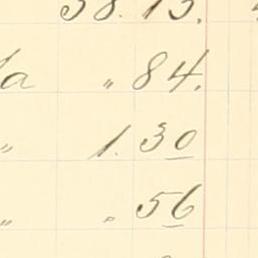 38.13.
a " 84.
" 1.30
" . 56